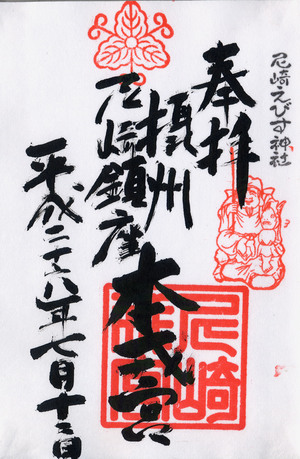 尼崎えびす神社
奉拝
摂州
尼崎鎮座
本戎宮
平成二十八年七月十二日
尼崎